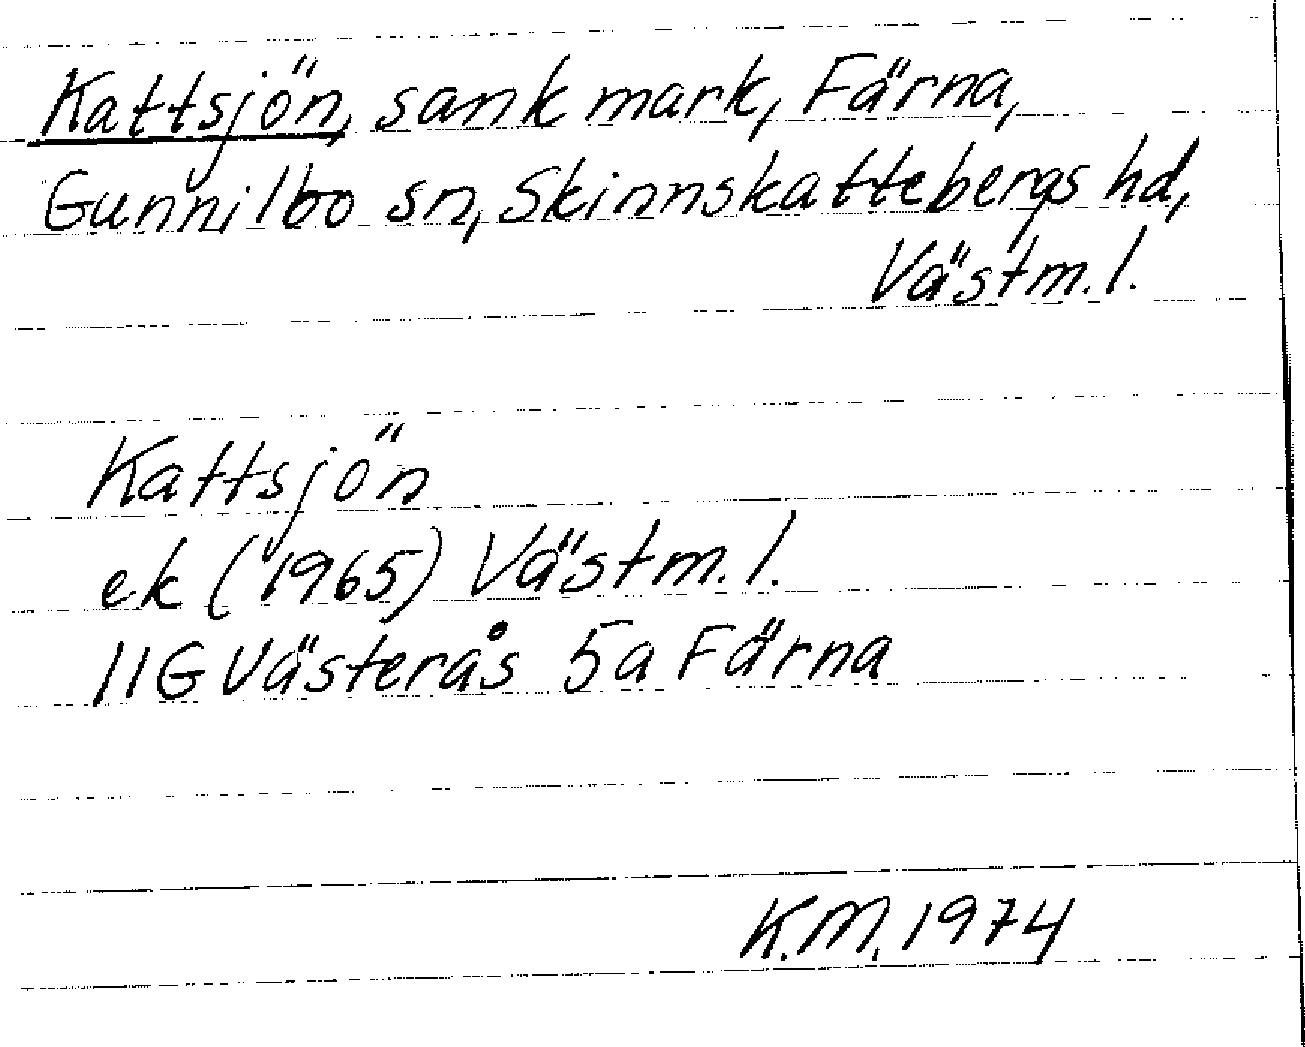 Kattsjön, sank mark, Färna,
Gunnilbo sn, Skinnskattebergs hd,
Västm.l.
Kattsjön
ek (1965) Västm.l.
11G Västerås 5a Färna
K.M. 1974